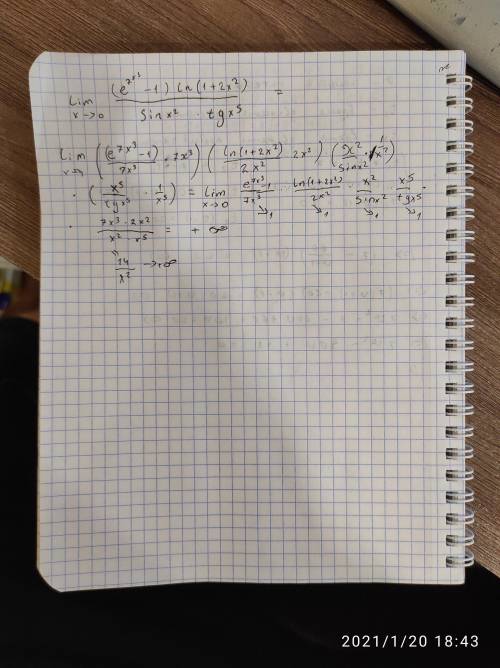 lim x→0 (e^{7x³} -1) ln(1+2x²) / sin x² · tg x⁵ =
lim x→0 ((e^{7x³}-1)/7x³ · 7x³) (ln(1+2x²)/2x² · 2x²) (x²/sin x² · 1/x²)
· (x⁵/tg x⁵ · 1/x⁵) = lim x→0 (e^{7x³}-1)/7x³ →1 · ln(1+2x²)/2x² →1 · x²/sin x² →1 · x⁵/tg x⁵ →1 ·
· 7x³ · 2x² / x² · x⁵ = +∞
14/x² → ∞
2021/1/20 18:43